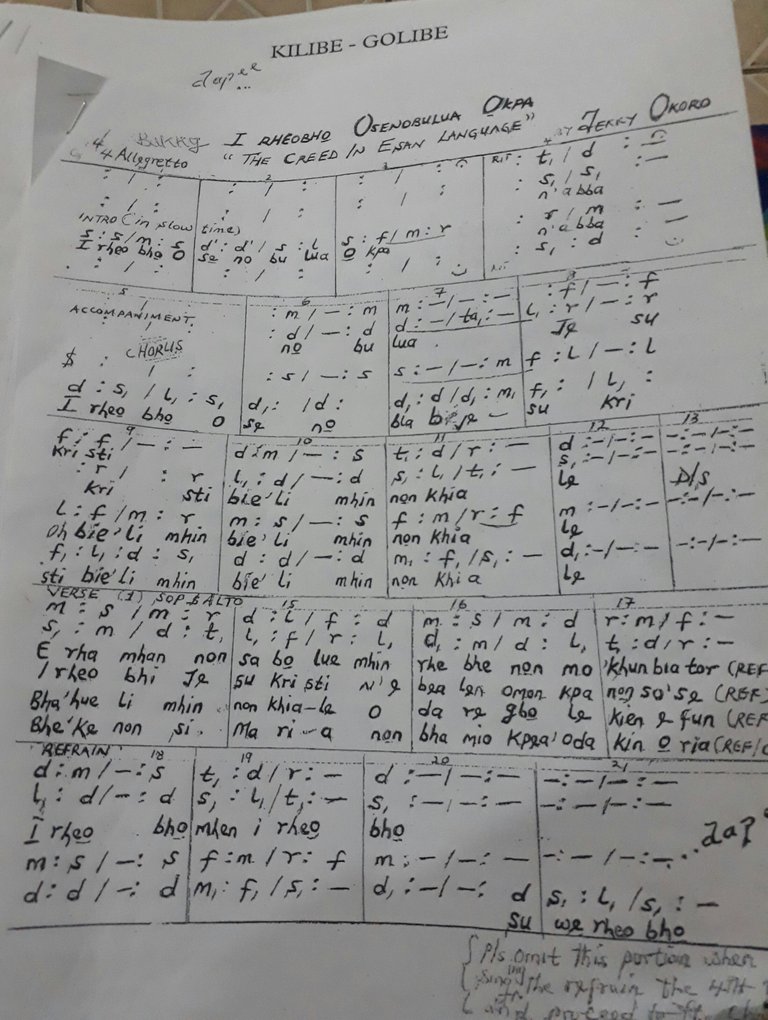 KILIBE - GOLIBE
I RHEOBHO OSENOBULUA OKPA
"THE CREED IN ESAN LANGUAGE" BY JERRY OKORO
4/4 Allegretto
: / : : / : : / : RIT: t, / d : —
: / : : / : : / : : s, / s, : —
n'abba
INTRO (in slow time) : r / m : —
n'abba
s : s / m : s d' : d' / s : l s : f / m : r : s, : d
I rheo bho O se no bu lua O kpa
5 6 7 8
ACCOMPANIMENT : m / — : m m : — / — : — : f / — : f
: d / — : d d : — / ta, : — l, : r / — : r
no bu lua Je su
$ : CHORUS : s / — : s s : — / — : m f : l / — : l
d : s, / l, : s, d, : / d : d, : d / d, : m, f, : / l, :
I rheo bho O se no bla bi'e — su kri
9 10 11 12 13
f : f / — : — d : m / — : s t, : d / r : — d : — / — : — — : — / — : —
kri sti
: r / : r l, : d / — : d s, : l, / t, : — s, : — / — : — — : — / — : —
kri sti bie' li mhin non khia le D/S
l : f / m : r m : s / — : s f : m / r : f m : — / — : — — : — / — : —
Oh bie' li mhin bie' li mhin non khia le
f, : l, : d : s, d : d / — : d m, : f, / s, : — d, : — / — : — — : — / — : —
sti bie' li mhin bie' li mhin non khi a le
VERSE (1) SOP & ALTO 15 16 17
m : s / m : r d : l / f : d m : s / m : d r : m / f : —
s, : m / d : t, l, : f / r : l, d, : m / d : l, t, : d / r : —
E rha mhan non sa bo lue mhin rhe bhe non mo 'khun bia tor (REF
I rheo bhi Je su Kri sti N'e bea len omon kpa non so' se (REF)
Bha'hue li mhin non khia-le O da re gbo le kien e fun (REF
Bhe'Ke non si. Ma ri-a non bha mio kpea' oda kin O ria (REF/
REFRAIN 18 19 20 21
d : m / — : s t, : d / r : — d : — / — : — — : — / — : —
l, : d / — : d s, : l, / t, : — s, : — / — : — — : — / — : —
I rheo bho mhen i rheo bho
m : s / — : s f : m / r : f m : — / — : — — : — / — : —
d : d / — : d m, : f, / s, : — d, : — / — : d s, : l, / s, : —
su we rheo bho
Pls omit this portion when
singing the refrain the 4th
and proceed to